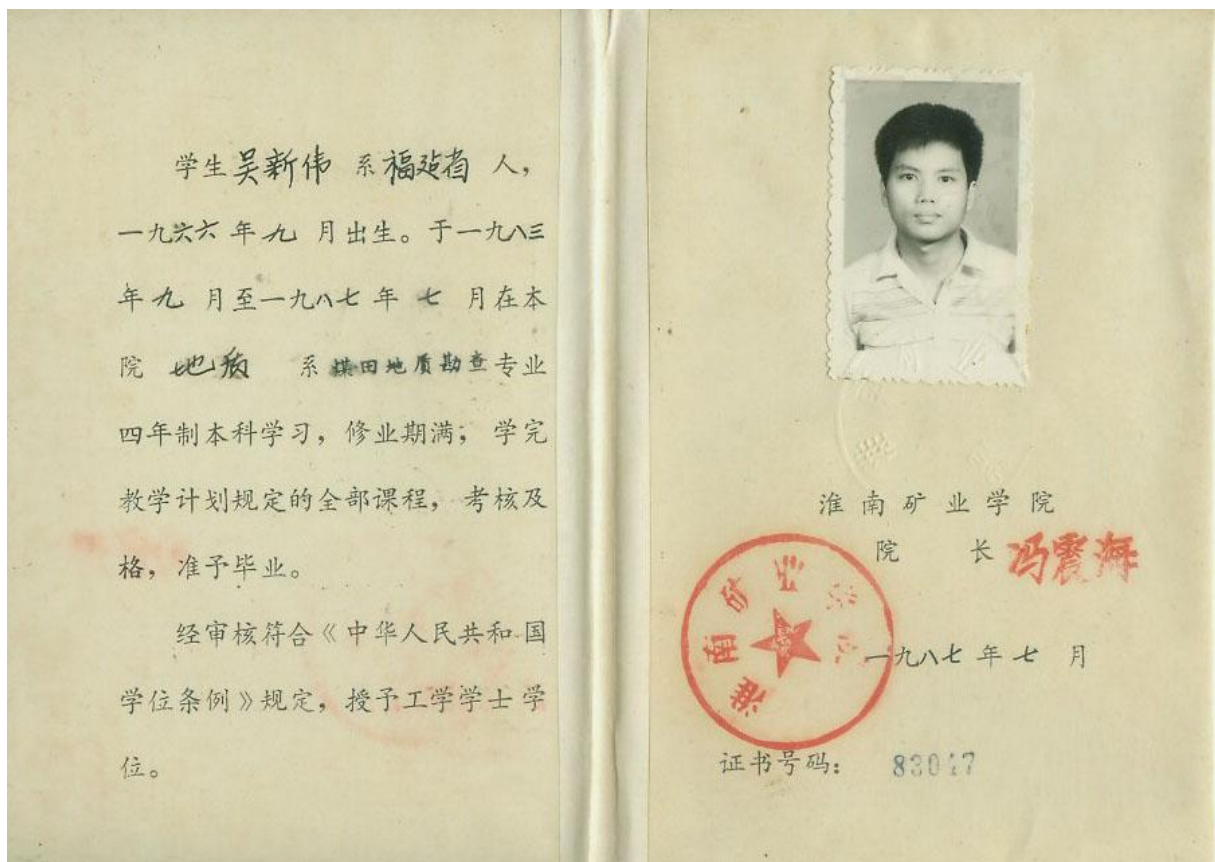 学生吴新伟 系福建省 人，
一九六六年九 月出生。于一九八三
年九 月至一九八七年 七 月在本
院 地质 系煤田地质勘查专业
四年制本科学习，修业期满；学完
教学计划规定的全部课程，考核及
格，准予毕业。
经审核符合《中华人民共和国
学位条例》规定，授予工学学士学
位。
淮南矿业学院
院 长 冯震海
淮南矿业学院
一九八七年七 月
证书号码：